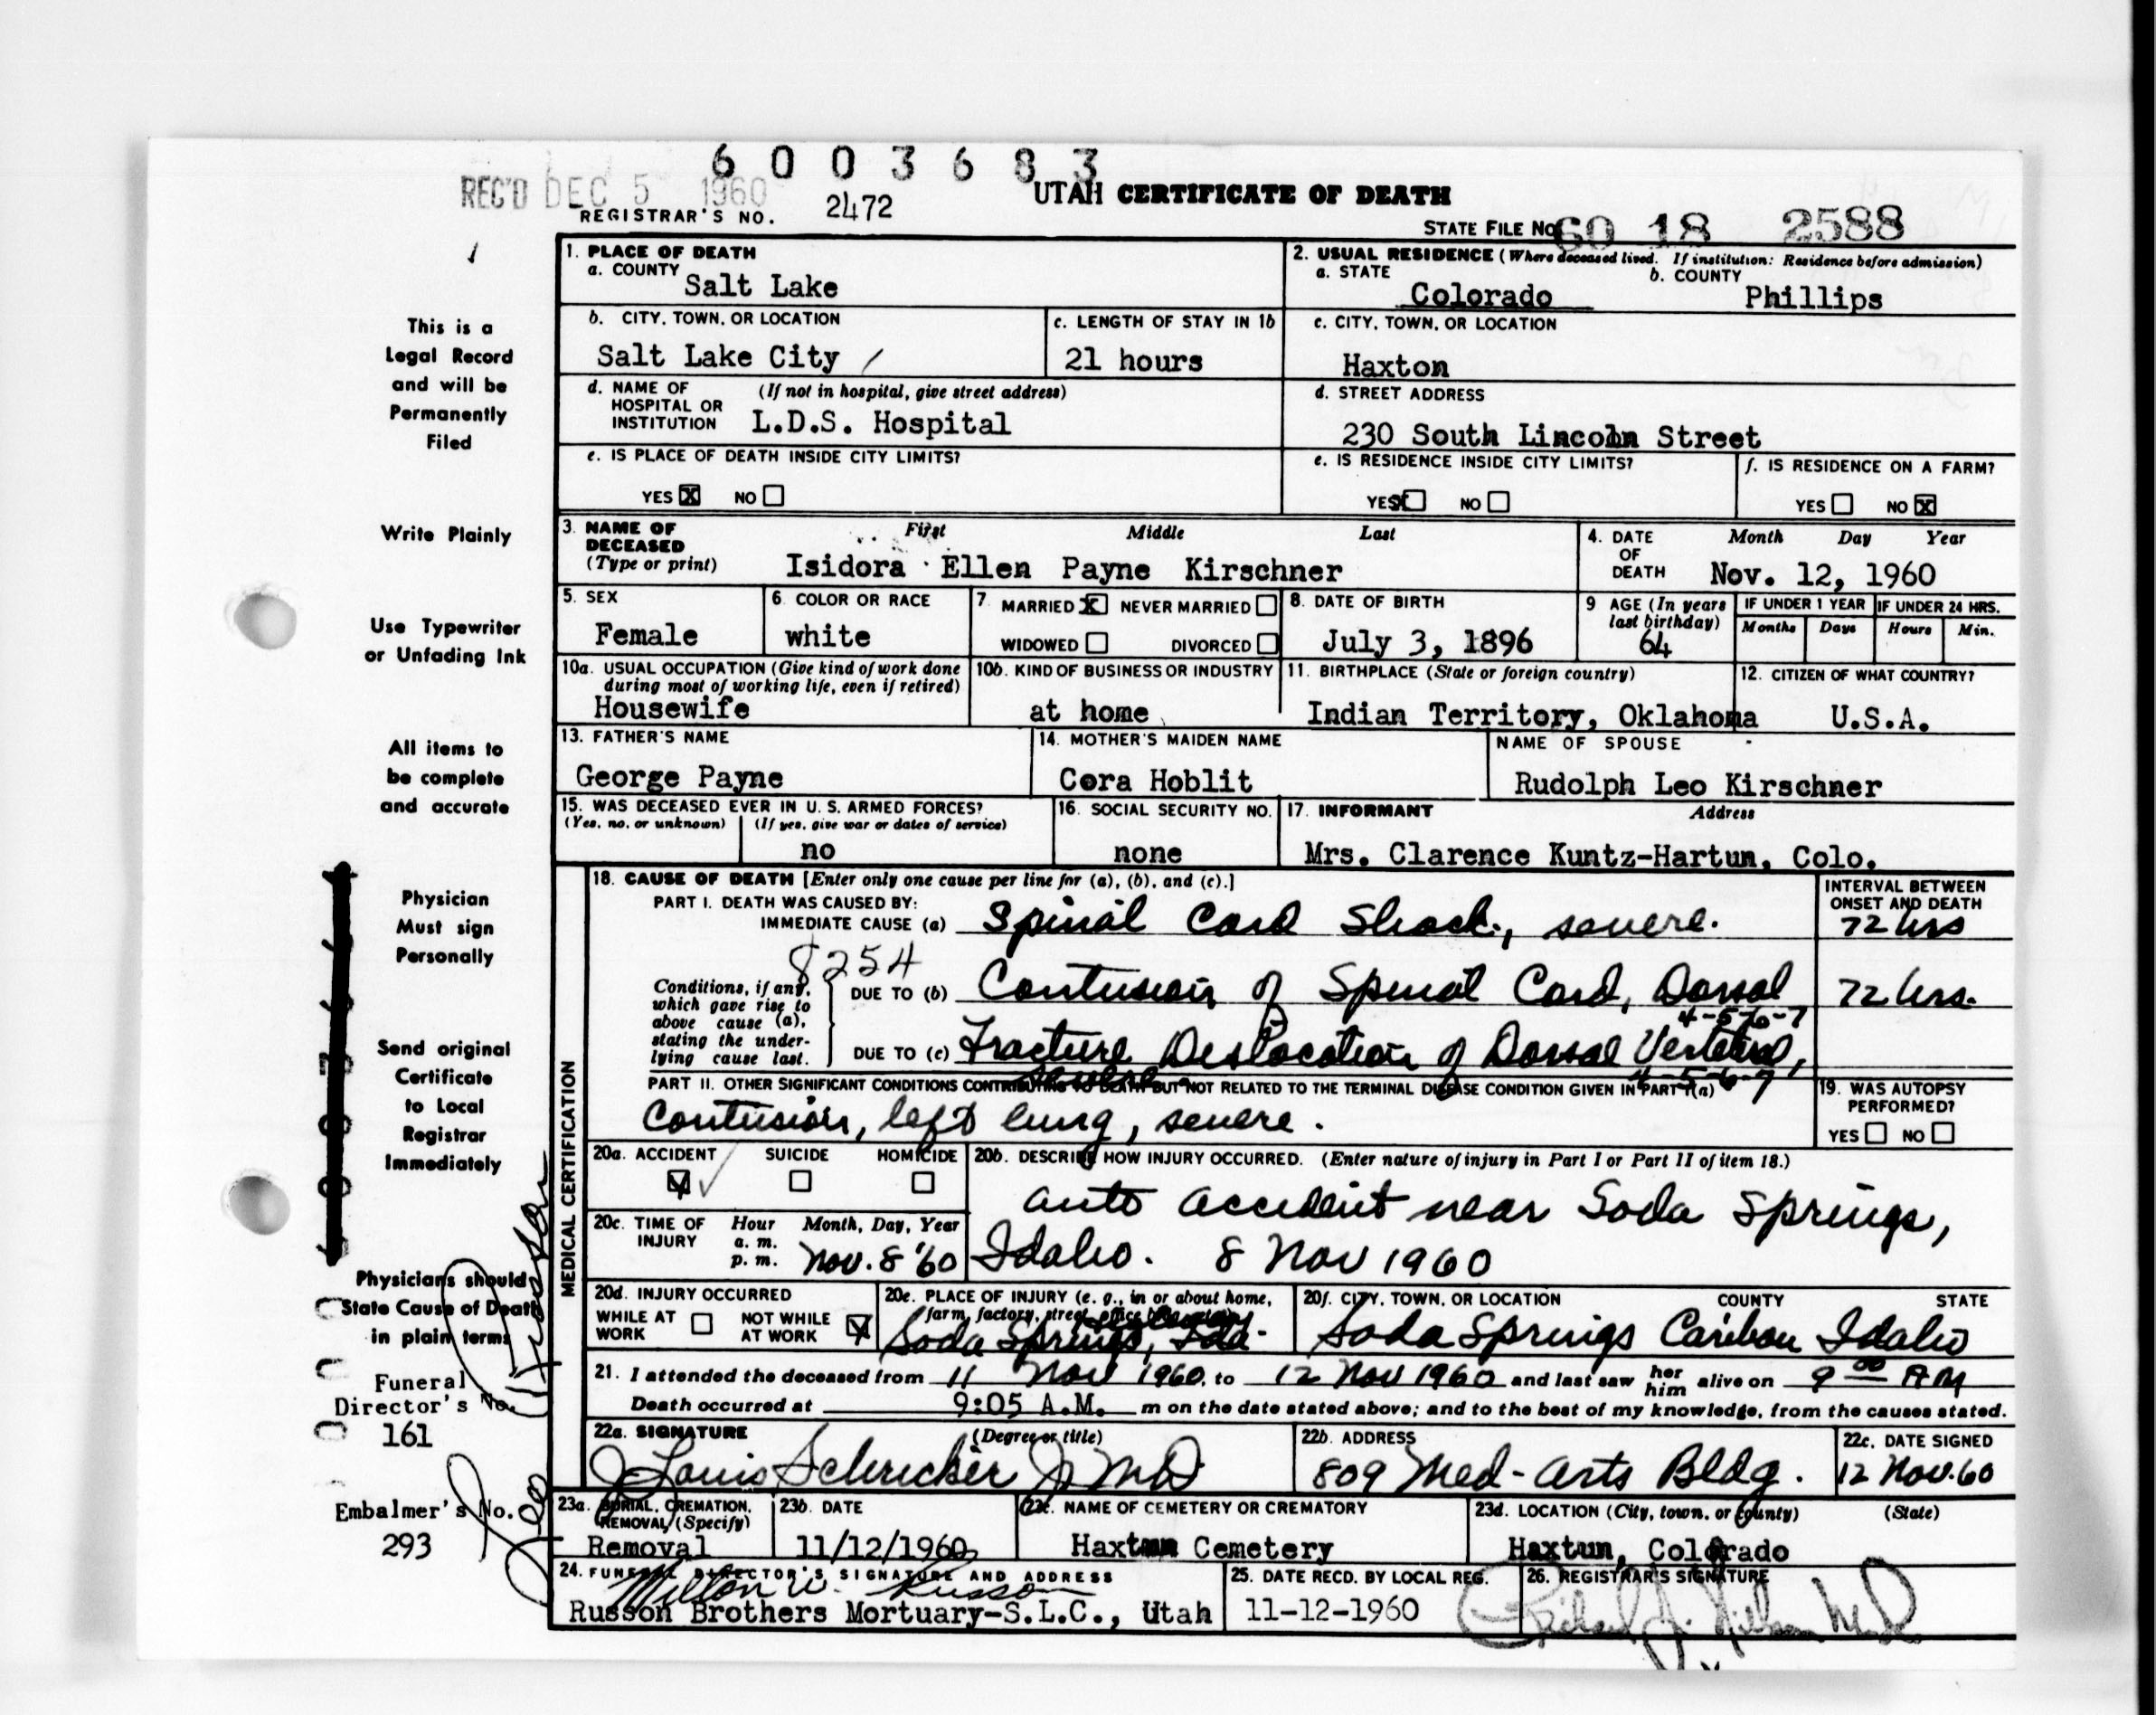 6 0 0 3 6 8 3
REC'D DEC 5 1960
UTAH CERTIFICATE OF DEATH
REGISTRAR'S NO. 2472
STATE FILE NO. 60 18 2588
1. PLACE OF DEATH
a. COUNTY
Salt Lake
2. USUAL RESIDENCE (Where deceased lived. If institution: Residence before admission)
a. STATE b. COUNTY
Colorado Phillips
b. CITY, TOWN, OR LOCATION
Salt Lake City
c. LENGTH OF STAY IN 1b
21 hours
c. CITY, TOWN, OR LOCATION
Haxton
d. NAME OF (If not in hospital, give street address)
HOSPITAL OR
INSTITUTION L.D.S. Hospital
d. STREET ADDRESS
230 South Lincoln Street
e. IS PLACE OF DEATH INSIDE CITY LIMITS?
YES X NO
e. IS RESIDENCE INSIDE CITY LIMITS?
YES X NO
f. IS RESIDENCE ON A FARM?
YES NO X
3. NAME OF DECEASED (Type or print)
First Middle Last
Isidora Ellen Payne Kirschner
4. DATE OF DEATH
Month Day Year
Nov. 12, 1960
5. SEX
Female
6. COLOR OR RACE
white
7. MARRIED X NEVER MARRIED
WIDOWED DIVORCED
8. DATE OF BIRTH
July 3, 1896
9 AGE (In years last birthday)
64
IF UNDER 1 YEAR IF UNDER 24 HRS.
Months Days Hours Min.
10a. USUAL OCCUPATION (Give kind of work done
during most of working life, even if retired)
Housewife
10b. KIND OF BUSINESS OR INDUSTRY
at home
11. BIRTHPLACE (State or foreign country)
Indian Territory, Oklahoma
12. CITIZEN OF WHAT COUNTRY?
U.S.A.
13. FATHER'S NAME
George Payne
14. MOTHER'S MAIDEN NAME
Cora Hoblit
NAME OF SPOUSE
Rudolph Leo Kirschner
15. WAS DECEASED EVER IN U. S. ARMED FORCES?
(Yes, no, or unknown) (If yes, give war or dates of service)
no
16. SOCIAL SECURITY NO.
none
17. INFORMANT Address
Mrs. Clarence Kuntz-Hartun, Colo.
MEDICAL CERTIFICATION
18. CAUSE OF DEATH [Enter only one cause per line for (a), (b), and (c).]
INTERVAL BETWEEN
ONSET AND DEATH
PART I. DEATH WAS CAUSED BY:
IMMEDIATE CAUSE (a) Spinal Cord Shock, severe. 72 hrs
8254
Conditions, if any,
which gave rise to
above cause (a),
stating the under-
lying cause last.
DUE TO (b) Contusion of Spinal Cord, Dorsal 72 hrs.
4-5-6-7
DUE TO (c) Fracture Dislocation of Dorsal Vertebra,
severe 4-5-6-7
PART II. OTHER SIGNIFICANT CONDITIONS CONTRIBUTING TO DEATH BUT NOT RELATED TO THE TERMINAL DISEASE CONDITION GIVEN IN PART I(a)
Contusion, left lung, severe.
19. WAS AUTOPSY
PERFORMED?
YES NO
20a. ACCIDENT SUICIDE HOMICIDE
20b. DESCRIBE HOW INJURY OCCURRED. (Enter nature of injury in Part I or Part II of item 18.)
auto accident near Soda Springs,
Idaho. 8 Nov 1960
20c. TIME OF INJURY
Hour Month, Day, Year
a. m.
p. m. Nov. 8 '60
20d. INJURY OCCURRED
WHILE AT WORK NOT WHILE AT WORK
20e. PLACE OF INJURY (e. g., in or about home,
farm, factory, street, office
Soda Springs, Ida.
20f. CITY, TOWN, OR LOCATION COUNTY STATE
Soda Springs Caribou Idaho
21. I attended the deceased from 11 Nov 1960, to 12 Nov 1960 and last saw her him alive on 9 00 AM
Death occurred at 9:05 A.M. m on the date stated above; and to the best of my knowledge, from the causes stated.
22a. SIGNATURE (Degree or title)
J Louis Schricker Jr MD
22b. ADDRESS
809 Med-Arts Bldg.
22c. DATE SIGNED
12 Nov. 60
23a. BURIAL, CREMATION,
REMOVAL (Specify)
Removal
23b. DATE
11/12/1960
23c. NAME OF CEMETERY OR CREMATORY
Haxtun Cemetery
23d. LOCATION (City, town, or county) (State)
Haxtun, Colorado
24. FUNERAL DIRECTOR'S SIGNATURE AND ADDRESS
Milton W. Russon
Russon Brothers Mortuary-S.L.C., Utah
25. DATE RECD. BY LOCAL REG.
11-12-1960
26. REGISTRAR'S SIGNATURE
This is a
Legal Record
and will be
Permanently
Filed
Write Plainly
Use Typewriter
or Unfading Ink
All items to
be complete
and accurate
Physician
Must sign
Personally
Send original
Certificate
to Local
Registrar
Immediately
Physicians should
State Cause of Death
in plain terms
Funeral
Director's No.
161
Embalmer's No.
293